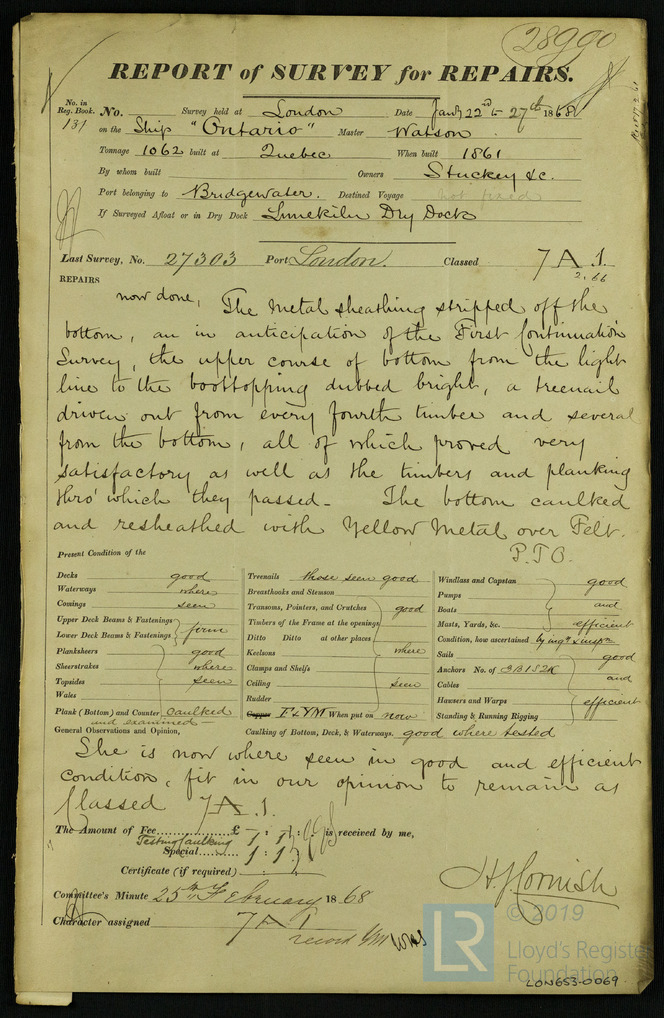 28990
REPORT of SURVEY for REPAIRS.
No. in Reg. Book. No. Survey held at London Date Jany 22nd to 27th 1868
131 on the Ship "Ontario" Master Watson
Tonnage 1062 built at Quebec When built 1861
By whom built Owners Stuckey &c.
Port belonging to Bridgewater. Destined Voyage not fixed
If Surveyed Afloat or in Dry Dock Limekiln Dry Dock
Last Survey, No. 27303 Port London. Classed 7 A 1.
2.66
REPAIRS
now done, The metal sheathing stripped off the
bottom, an in anticipation of the First Continuation
Survey, the upper course of bottom from the light
line to the boottopping dubbed bright, a treenail
driven out from every fourth timber and several
from the bottom, all of which proved very
satisfactory as well as the timbers and planking
thro' which they passed - The bottom caulked
and resheathed with Yellow Metal over Felt.
P.T.O.
Present Condition of the
Decks good
Waterways where
Comings seen
Upper Deck Beams & Fastenings
Lower Deck Beams & Fastenings firm
Planksheers good
Sheerstrakes where
Topsides seen
Wales
Plank (Bottom) and Counter Caulked
and examined -
Treenails those seen good
Breasthooks and Stemson
Transoms, Pointers, and Crutches good
Timbers of the Frame at the openings
Ditto Ditto at other places
Keelsons where
Clamps and Shelfs
Ceiling seen
Rudder
Copper F & YM When put on now
Caulking of Bottom, Deck, & Waterways. good where tested
Windlass and Capstan good
Pumps
Boats and
Masts, Yards, &c. efficient
Condition, how ascertained by
Sails good
Anchors No. of 3B1S2K
Cables and
Hawsers and Warps
Standing & Running Rigging efficient
General Observations and Opinion,
She is now where seen in good and efficient
condition, fit in our opinion to remain as
Classed 7 A 1.
The Amount of Fee £ is received by me,
Testing Caulking
Special 1 : 1 :
Certificate (if required) :
H J Cornish
Committee's Minute 25th February 1868
Character assigned 7 A 1
record YM
LR
© 2019
Lloyd's Register
Foundation
LON653-0069